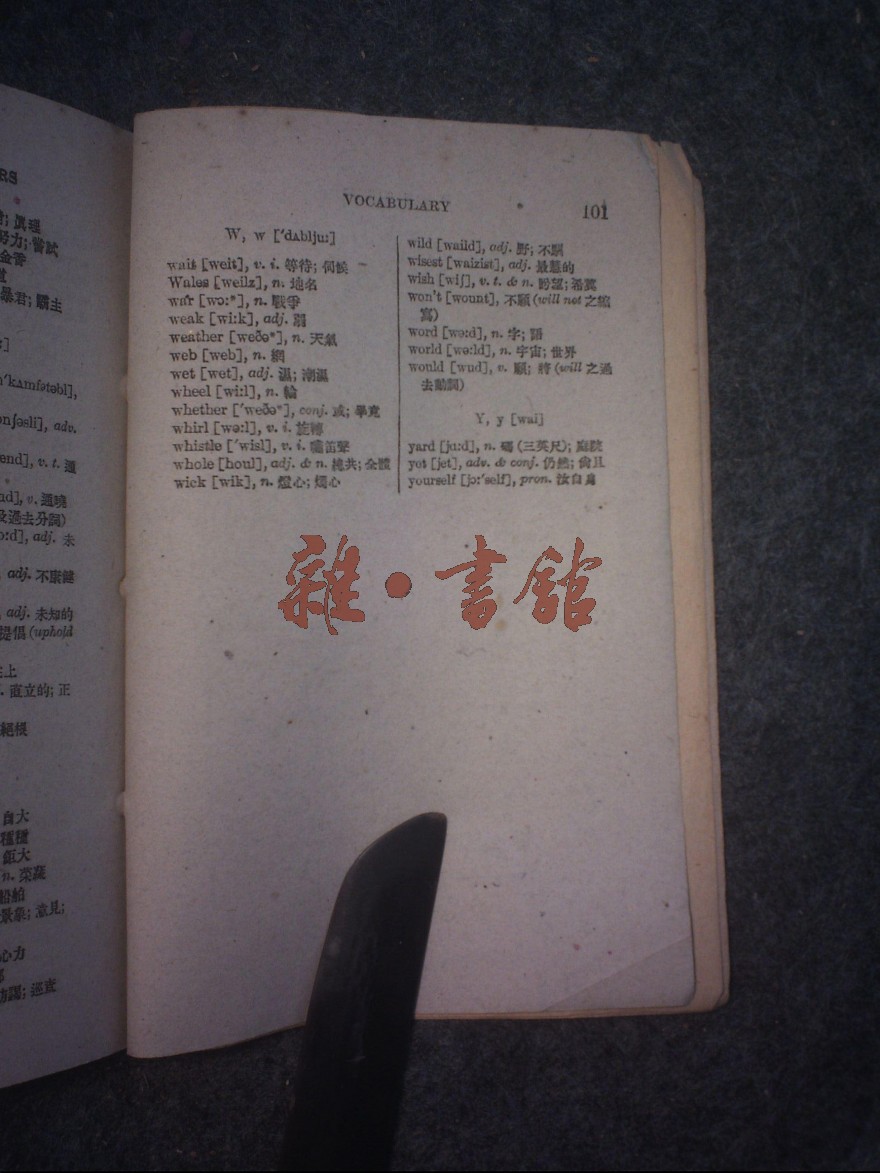 RS
眞理
努力; 嘗試
暴君; 霸主
'kʌmfətəbl],
onʃəsli], adv.
end], v. t. 通
ud], v. 通曉
及過去分詞)
ɔ:d], adj. 未
adj. 不康健
adj. 未知的
提倡 (uphold
上
直立的; 正
自大
種種
鉅大
n. 菜蔬
船舶
景象; 意見;
心力
巡查
VOCABULARY 101
W, w ['dʌblju:]
wait [weit], v. i. 等待; 伺候
Wales [weilz], n. 地名
war [wɔ:*], n. 戰爭
weak [wi:k], adj. 弱
weather [weðə*], n. 天氣
web [web], n. 網
wet [wet], adj. 濕; 潮濕
wheel [wi:l], n. 輪
whether ['weðə*], conj. 或; 畢竟
whirl [wə:l], v. i. 旋轉
whistle ['wisl], v. i. 嘯笛聲
whole [houl], adj. & n. 總共; 全體
wick [wik], n. 燈心; 燭心
wild [waild], adj. 野; 不馴
wisest [waizist], adj. 最慧的
wish [wiʃ], v. t. & n. 盼望; 希冀
won't [wount], 不願 (will not 之縮
寫)
word [wə:d], n. 字; 語
world [wə:ld], n. 宇宙; 世界
would [wud], v. 願; 將 (will 之過
去動詞)
Y, y [wai]
yard [ja:d], n. 碼 (三英尺); 庭院
yet [jet], adv. & conj. 仍然; 尙且
yourself [jɔ:'self], pron. 汝自身
雜·書館